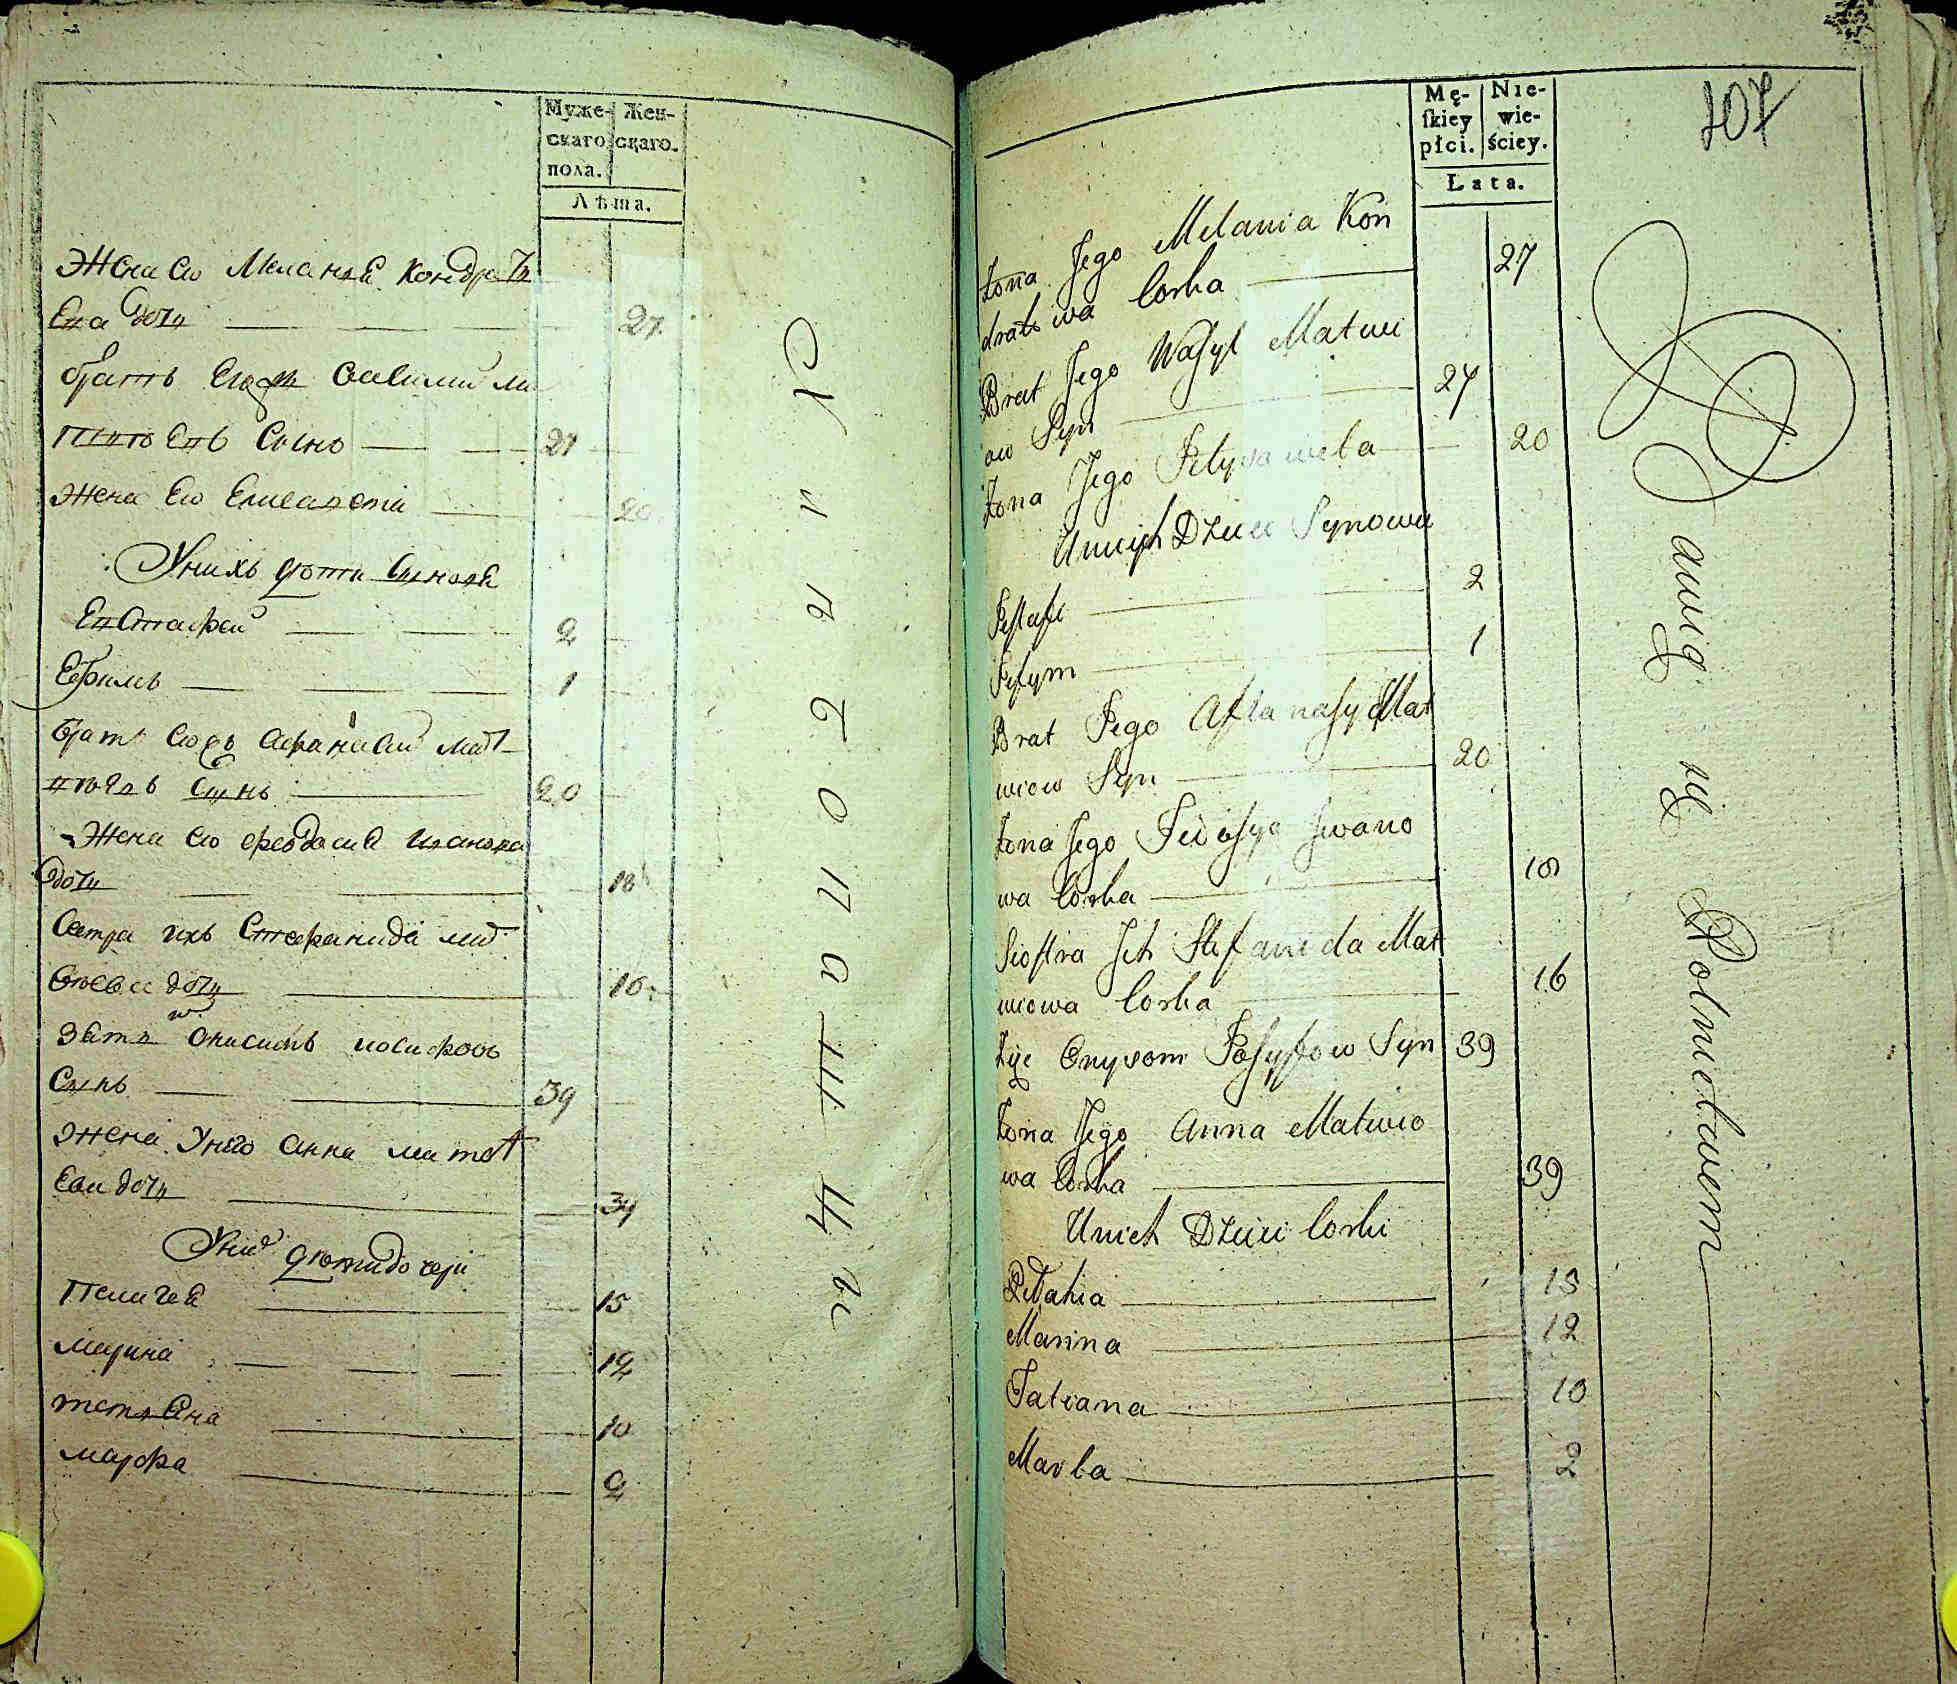 Муже-
скаго
пола.
Жен-
скаго.
Лѣта.
Жена его Меланья Кондрать
ева дочь 27
братъ Василий Ма
твѣевъ Сынъ 27
Жена его Елисавета 20
У нихъ дѣти Сыновья
Евстафей 2
Ефимъ 1
братъ Афанасий Мат
вѣевъ Сынъ 20
Жена его Феодосия Иванова
дочь 18
Сестра ихъ Стефанида Мат
вѣева дочь 16
Зять Онисимъ Иосифовъ
Сынъ 39
Жена у него Анна Матвѣ
ева дочь 39
У нихъ дѣти дочери
Пелагея 15
Марина 12
Татьяна 10
Марфа 2
107
Mę-
skiey
płci.
Nie-
wie-
ściey.
Lata.
Żona Jego Melania Kon
dratowa Corka 27
Brat Jego Wasyl Matwi
ow Syn 27
Żona Jego Jelysaweta 20
U nich Dzieci Synowie
Jestafi 2
Jefym 1
Brat Jego Aftanasy Mat
wiow Syn 20
Żona Jego Fedosya Jwano
wa Corka 18
Siostra Jch Stefanida Mat
wiowa Corka 16
Zięć Onysom Josyfow Syn 39
Żona Jego Anna Matwio
wa Corka 39
U nich Dzieci Corki
Pelahia 15
Marina 12
Tatiana 10
Marta 2